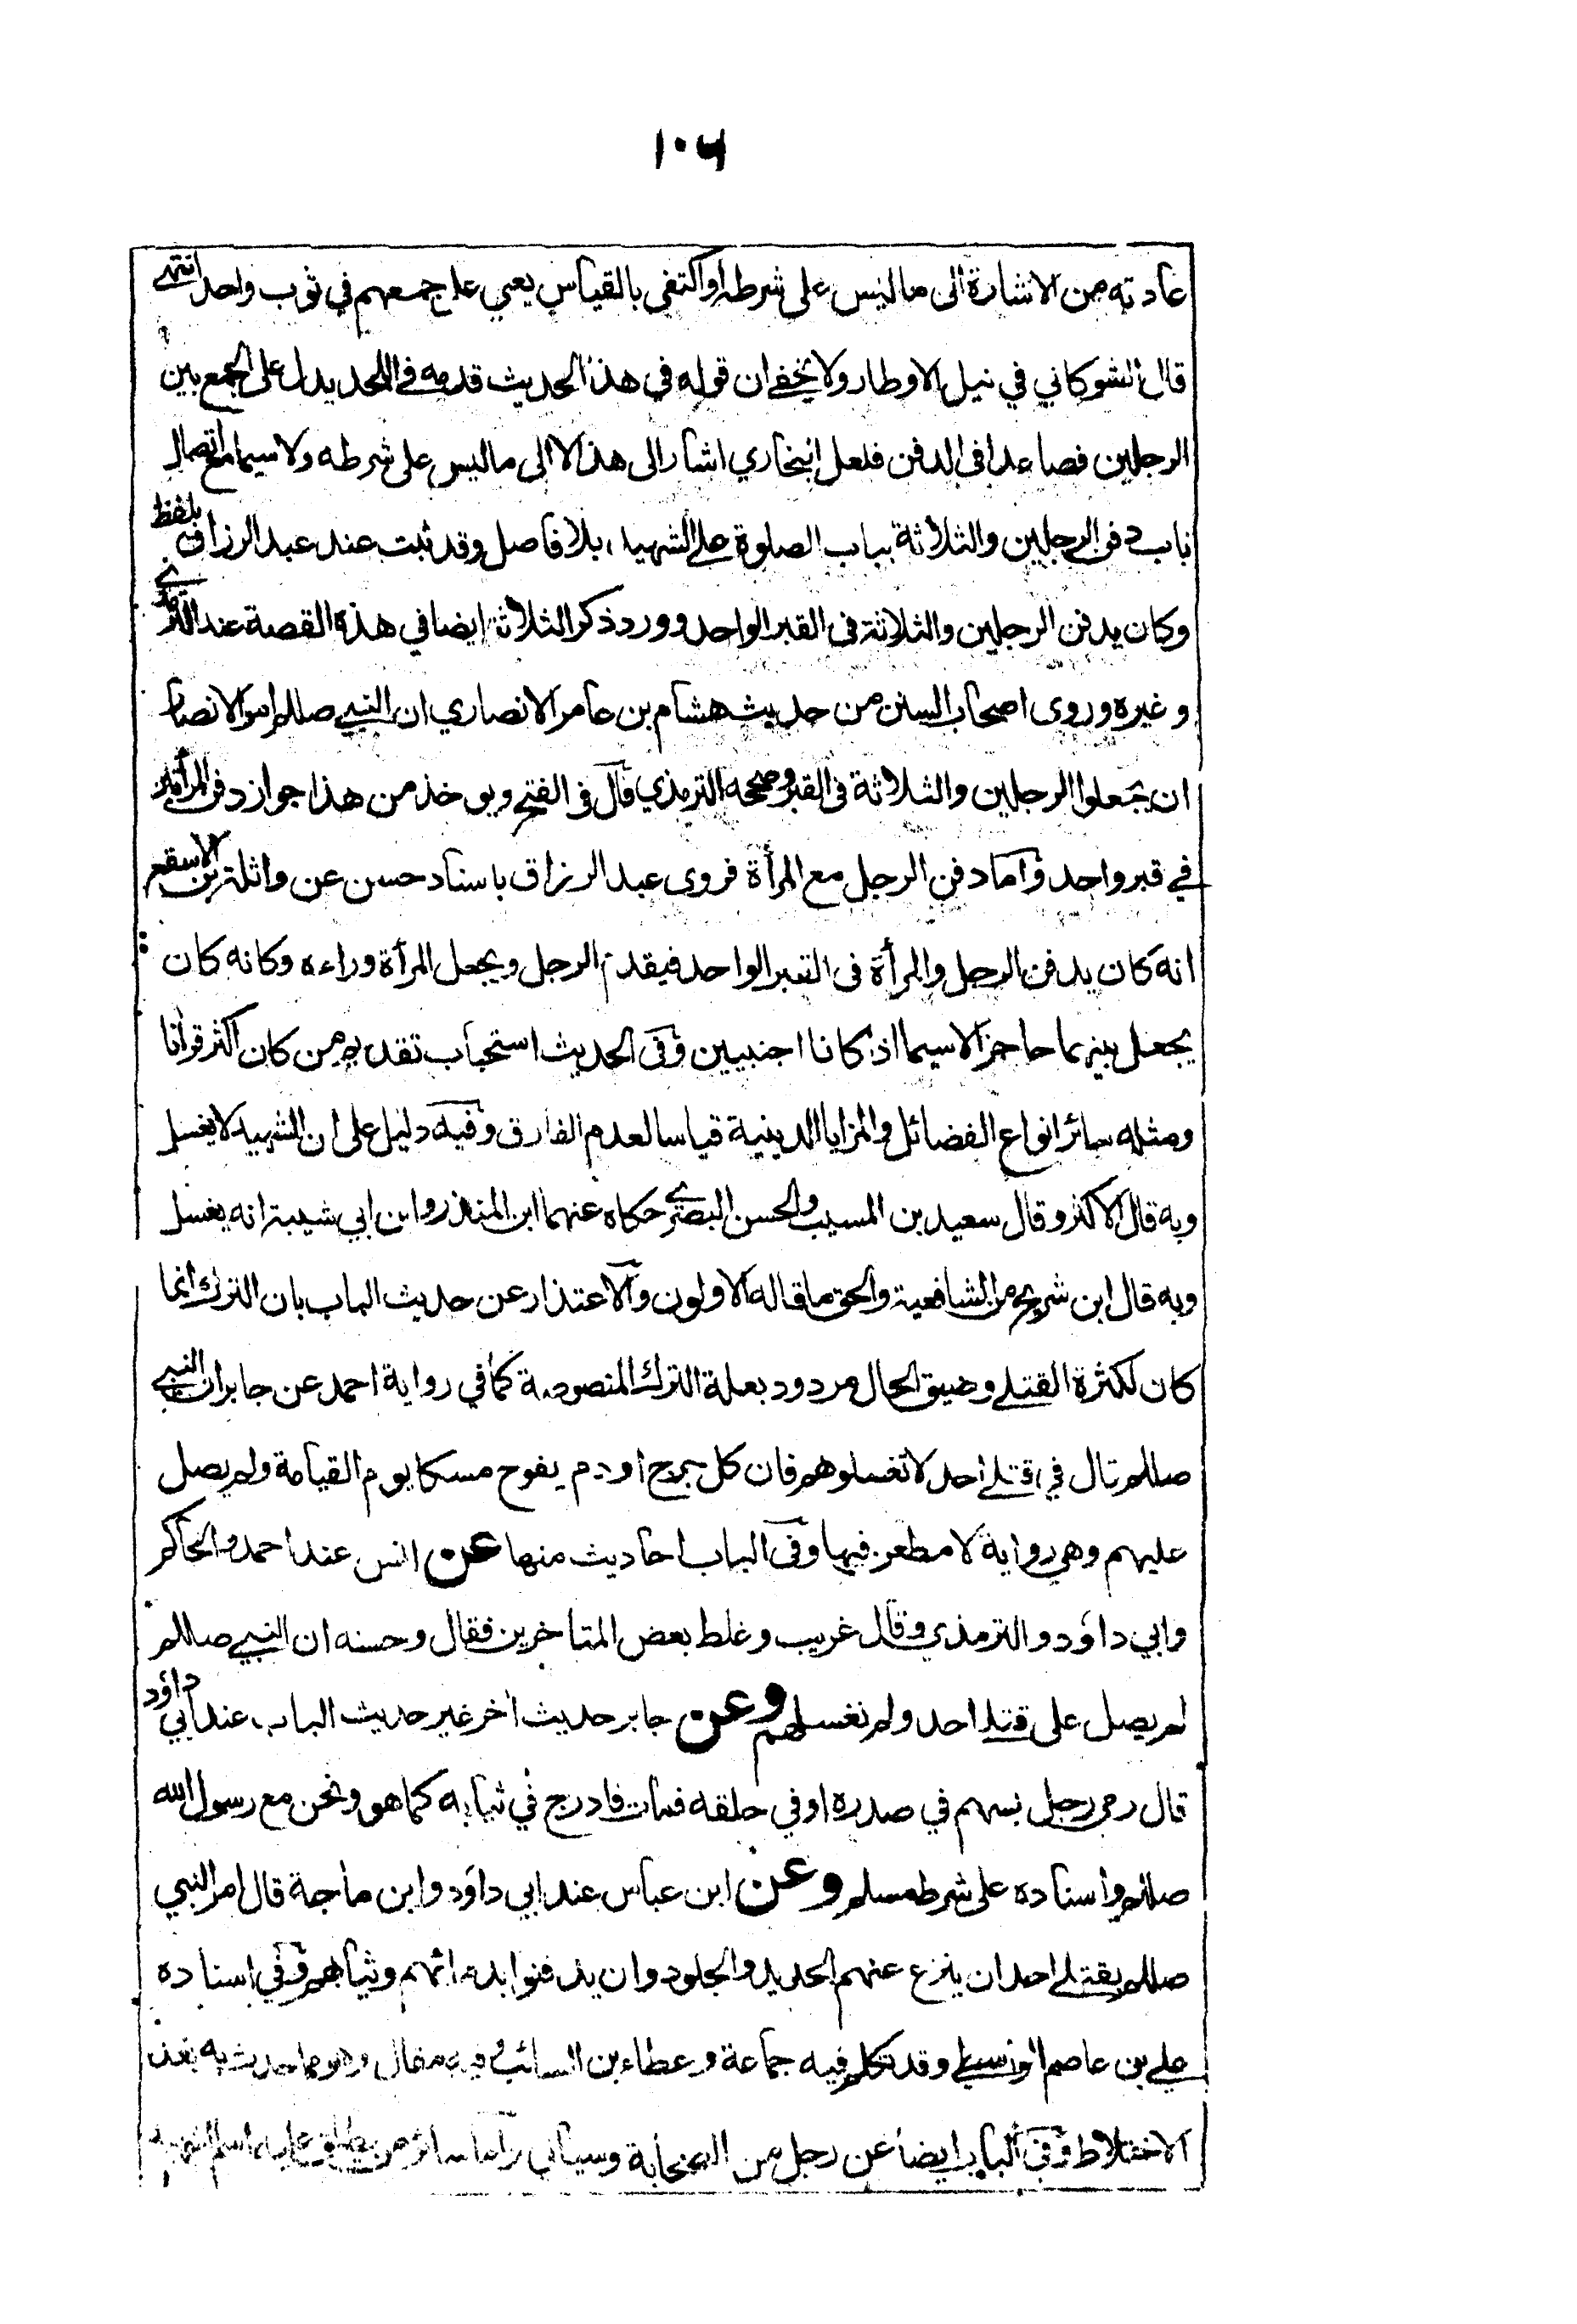 ١٠٦
عادته من الاشارة الى ما ليس على شرطه او اكتفى بالقياس يعني على جمعهم في ثوب واحد انتهى
قال الشوكاني في نيل الاوطار ولا يخفى ان قوله في هذا الحديث قدمه في اللحد يدل على الجمع بين
الرجلين فصاعدا في الدفن فلعل البخاري اشار الى هذا لا الى ما ليس على شرطه ولا سيما مع اتصال
باب دفن الرجلين والثلاثة بباب الصلوة على الشهيد بلا فاصل وقد ثبت عند عبد الرزاق بلفظ
وكان يدفن الرجلين والثلاثة في القبر الواحد وورد ذكر الثلاثة ايضا في هذه القصة عند الترمذي
وغيره وروى اصحاب السنن من حديث هشام بن عامر الانصاري ان النبي صللم امر الانصار
ان يجعلوا الرجلين والثلاثة في القبر وصححه الترمذي قال في الفتح ويوخذ من هذا جواز دفن المرأتين
في قبر واحد وأما دفن الرجل مع المرأة فروى عبد الرزاق باسناد حسن عن واثلة بن الاسقع
انه كان يدفن الرجل والمرأة في القبر الواحد فيقدم الرجل ويجعل المرأة وراءه وكانه كان
يجعل بينهما حاجزا لا سيما اذا كانا اجنبيين وفي الحديث استحباب تقديم من كان اكثر قرأنا
ومثله سائر انواع الفضائل والمزايا الدينية قياسا لعدم الفارق وفيه دليل على ان الشهيد لا يغسل
وبه قال الاكثر وقال سعيد بن المسيب والحسن البصري حكاه عنهما ابن المنذر وابن ابي شيبة انه يغسل
وبه قال ابن شريح من الشافعية والحق ما قاله الاولون والاعتذار عن حديث الباب بان الترك انما
كان لكثرة القتلى وضيق الحال مردود بعلة الترك المنصوصة كما في رواية احمد عن جابر ان النبي
صللم قال في قتلى احد لا تغسلوهم فان كل جرح او دم يفوح مسكا يوم القيامة ولم يصل
عليهم وهي رواية لا مطعن فيها وفي الباب احاديث منها عن انس عند احمد والحاكم
وابي داؤد والترمذي وقال غريب وغلط بعض المتاخرين فقال وحسنه ان النبي صللم
لم يصل على قتلى احد ولم نغسلهم وعن جابر حديث أخر غير حديث الباب عند ابي داؤد
قال رمى رجل بسهم في صدره او في حلقه فمات فادرج في ثيابه كما هو ونحن مع رسول الله
صللم وأسناده على شرط مسلم وعن ابن عباس عند ابي داؤد وابن ماجة قال امر النبي
صللم بقتلى احد ان ينزع عنهم الحديد والجلود وان يدفنوا بدمائهم وثيابهم وفي اسناده
علي بن عاصم الواسطي وقد تكلم فيه جماعة وعطاء بن السائب وفيه مقال وهو مما حدث به بعد
الاختلاط وفي الباب ايضا عن رجل من الصحابة وسياتي وأما سائر من يطلق عليه اسم الشهيد